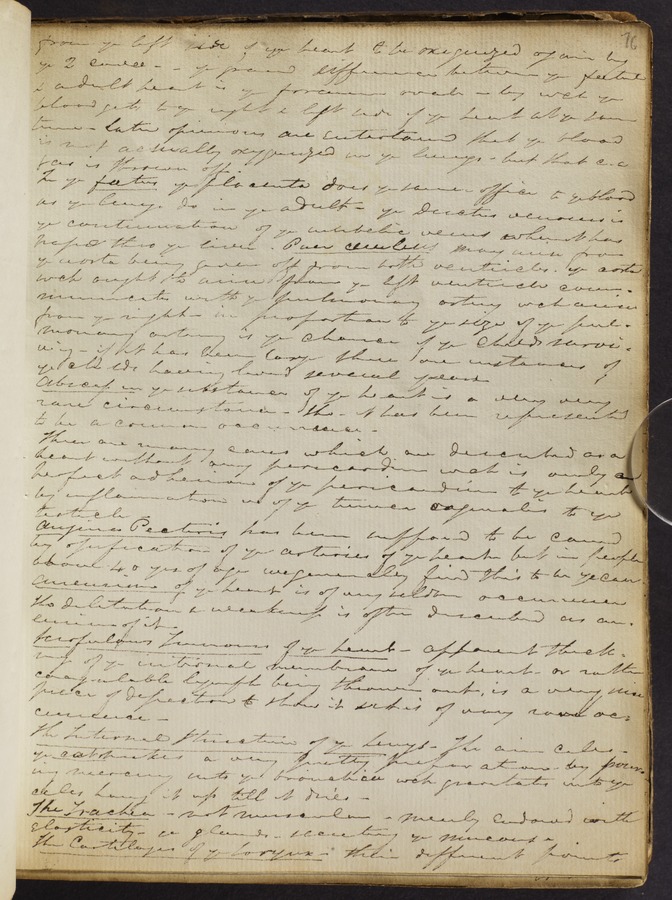 76
from ye left side of ye heart to be oxegenized again by
ye 2 cavea - - ye grand difference between ye foetal
& adult heart is ye foramen ovale - by wch ye
blood gets to ye right & left side of ye heart at ye same
time - Later opinions are entertained that ye blood
is not actually oxygenized in ye lungs - but that c.a
gas is thrown off
In ye foetus ye placenta does ye same office to ye blood
as ye lungs do in ye adult - ye Ductus venosus is
ye continuation of ye umbelic veins when it has
pass'd thro ye liver. Puer ceruleus may arise from
ye aorta being given off from both ventricles. ye aorta
wch ought to arise from ye left ventricle com-
municates with ye pulmonary artery wch arises
from ye right - in proportion to ye size of ye pul-
monary artery is ye chance of ye childs survi-
ving - if it has been large there are instances of
ye childs having lived several years
Abscess in ye substance of ye heart is a very very
rare circumstance - tho - it has been represented
to be a common occurrence -
There are many cases which are described as a
heart without any pericardium wch is only a
perfect adhesion of ye pericardium to ye heart
by inflammation as of ye tunica vaginalis to ye
testicle
Angina Pectoris has been supposed to be caused
by ossification of ye arteries of ye heart but in people
about 40 yrs of age we generally find this to be ye case
Aneurism of ye heart is of very seldom occurrence
tho dilitation & weakness is often described as an-
eurism of it -
Scrofulous Tumours of ye heart - apparent thick-
ing of ye internal membrane of ye heart - or rather
coagulable lymph being thrown out, is a very nice
piece of dissection to shew it & this is of very rare oc-
currence -
The Internal Structure of ye lungs - The air cells -
ye cat makes a very pretty preparation by pour-
ing mercury into ye bronchia wch gravitates into ye
cells hang it up till it dries -
The Trachea - not muscular - merely endowed with
elasticity - ye glands secreting ye mucous -
The Cartilages of ye larynx - their different points